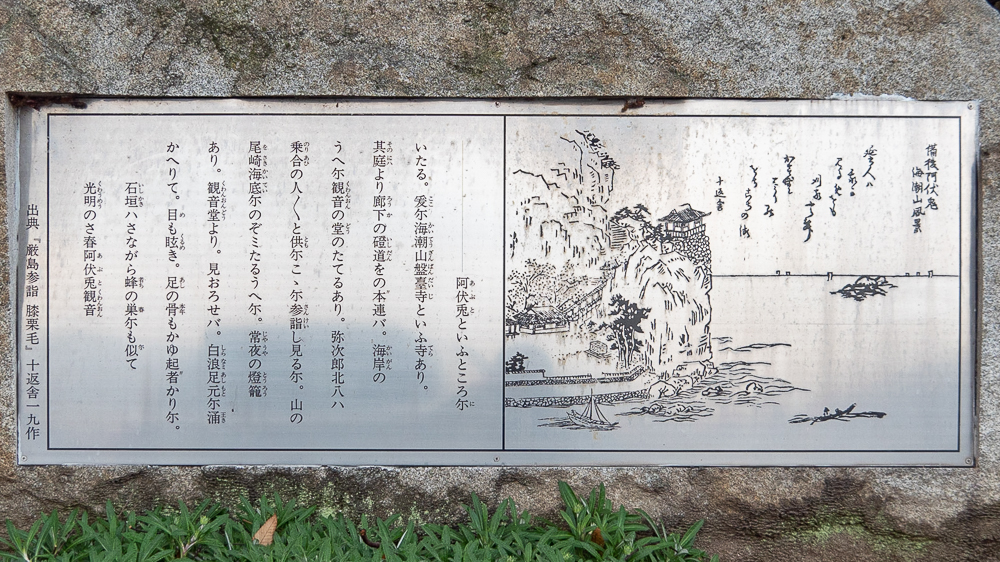 備後阿伏兎
海潮山風景
十返舎
阿伏兎といふところ尓
いたる。爰尓海潮山盤臺寺といふ寺あり。
其庭より廊下の磴道をの本連バ。海岸の
うへ尓観音の堂のたてるあり。弥次郎北八ハ
乗合の人〱と供尓こゝ尓参詣し見る尓。山の
尾崎海底尓のぞミたるうへ尓。常夜の燈籠
あり。観音堂より。見おろせバ。白浪足元尓涌
かへりて。目も眩き。足の骨もかゆ起者かり尓。
石垣ハさながら蜂の巣尓も似て
光明のさ春阿伏兎観音
出典『厳島参詣 膝栗毛』 十返舎一九作